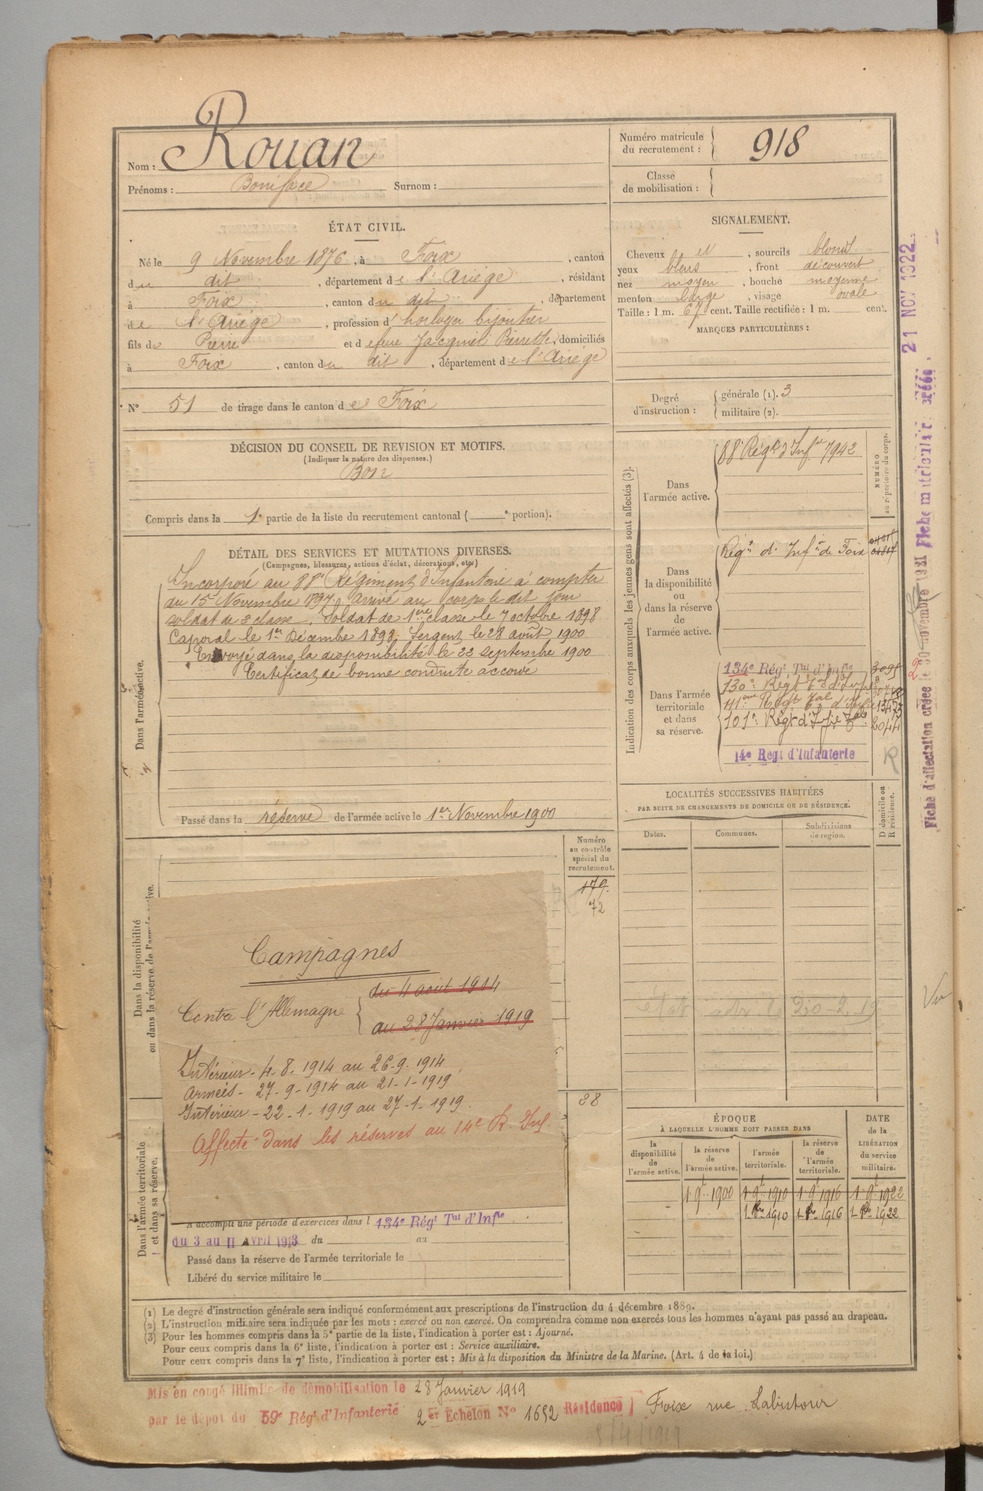 Nom : Rouan
Prénoms : Boniface Surnom :
Numéro matricule du recrutement : 918
Classe de mobilisation :
ÉTAT CIVIL.
Né le 9 Novembre 1876, à Foix, canton
du dit, département de l'Ariège, résidant
à Foix, canton du dit, département
de l'Ariège, profession d'horloger bijoutier
fils de Pierre et d efeue Jacquiel Pierrette, domiciliés
à Foix, canton du dit, département de l'Ariège
N° 51 de tirage dans le canton de Foix
SIGNALEMENT.
Cheveux et, sourcils blond
yeux bleus, front découvert
nez moyen, bouche moyenne
menton large, visage ovale
Taille : 1 m. 67 cent. Taille rectifiée : 1 m. cent.
MARQUES PARTICULIÈRES :
Degré d'instruction : générale (1). 3
militaire (2).
DÉCISION DU CONSEIL DE REVISION ET MOTIFS.
(Indiquer la nature des dispenses.)
Bon
Compris dans la 1e partie de la liste du recrutement cantonal ( e portion).
DÉTAIL DES SERVICES ET MUTATIONS DIVERSES.
(Campagnes, blessures, actions d'éclat, décorations, etc.)
Dans l'armée active.
Incorporé au 88e Régiment d'Infanterie à compter
du 15 Novembre 1897. Arrivé au corps le dit jour
soldat de 2e classe. Soldat de 1ère classe le 7 octobre 1898
Caporal le 1er Décembre 1898 Sergent le 28 août 1900
Envoyé dans la disponibilité le 22 septembre 1900
Certificat de bonne conduite accordé
Passé dans la réserve de l'armée active le 1er Novembre 1900
Indication des corps auxquels les jeunes gens sont affectés (3).
NUMÉRO au répertoire du corps.
Dans l'armée active.
88e Régt d'Infie 7942
Dans la disponibilité ou dans la réserve de l'armée active.
Régt d'Infie de Foix
Dans l'armée territoriale et dans sa réserve.
134e Régt Tal d'Infie
130e Régt Tal d'Infie
101e Régt d'Infie Tale
14e Régt d'Infanterie
R
LOCALITÉS SUCCESSIVES HABITÉES
PAR SUITE DE CHANGEMENTS DE DOMICILE OU DE RÉSIDENCE.
Dates. Communes. Subdivisions de région. D domicile ou R résidence.
Numéro au contrôle spécial du recrutement.
179
72
38
Dans la disponibilité ou dans la réserve de l'armée active.
Campagnes
Contre l'Allemagne { du 4 août 1914
au 28 Janvier 1919
Intérieur - 4. 8. 1914 au 26-9. 1914
Armées - 27-9-1914 au 21-1-1919
Intérieur - 22-1-1919 au 27-1-1919.
Affecté dans les réserves au 14e R. Inf.
Dans l'armée territoriale et dans sa réserve.
A accompli une période d'exercices dans l 134e Régt Tal d'Infie
du 3 au 11 Avril 1913 du au
Passé dans la réserve de l'armée territoriale le
Libéré du service militaire le
ÉPOQUE
À LAQUELLE L'HOMME DOIT PASSER DANS
DATE de la LIBÉRATION du service militaire.
la disponibilité de l'armée active. la réserve de l'armée active. l'armée territoriale. la réserve de l'armée territoriale.
1 9e 1900 1 9e 1910 1 9e 1916 1 9e 1922
1 8e 1910 1 8e 1916 1 8e 1922
(1) Le degré d'instruction générale sera indiqué conformément aux prescriptions de l'instruction du 4 décembre 1889.
(2) L'instruction militaire sera indiquée par les mots : exercé ou non exercé. On comprendra comme non exercés tous les hommes n'ayant pas passé au drapeau.
(3) Pour les hommes compris dans la 5e partie de la liste, l'indication à porter est : Ajourné.
Pour ceux compris dans la 6e liste, l'indication à porter est : Service auxiliaire.
Pour ceux compris dans la 7e liste, l'indication à porter est : Mis à la disposition du Ministre de la Marine. (Art. 4 de la loi.)
Mis en congé illimité de démobilisation le 28 Janvier 1919
par le dépôt du 59e Régt d'Infanterie 2er Echelon N° 1652 Résidence Foix rue Labistour
21 NOV 1922